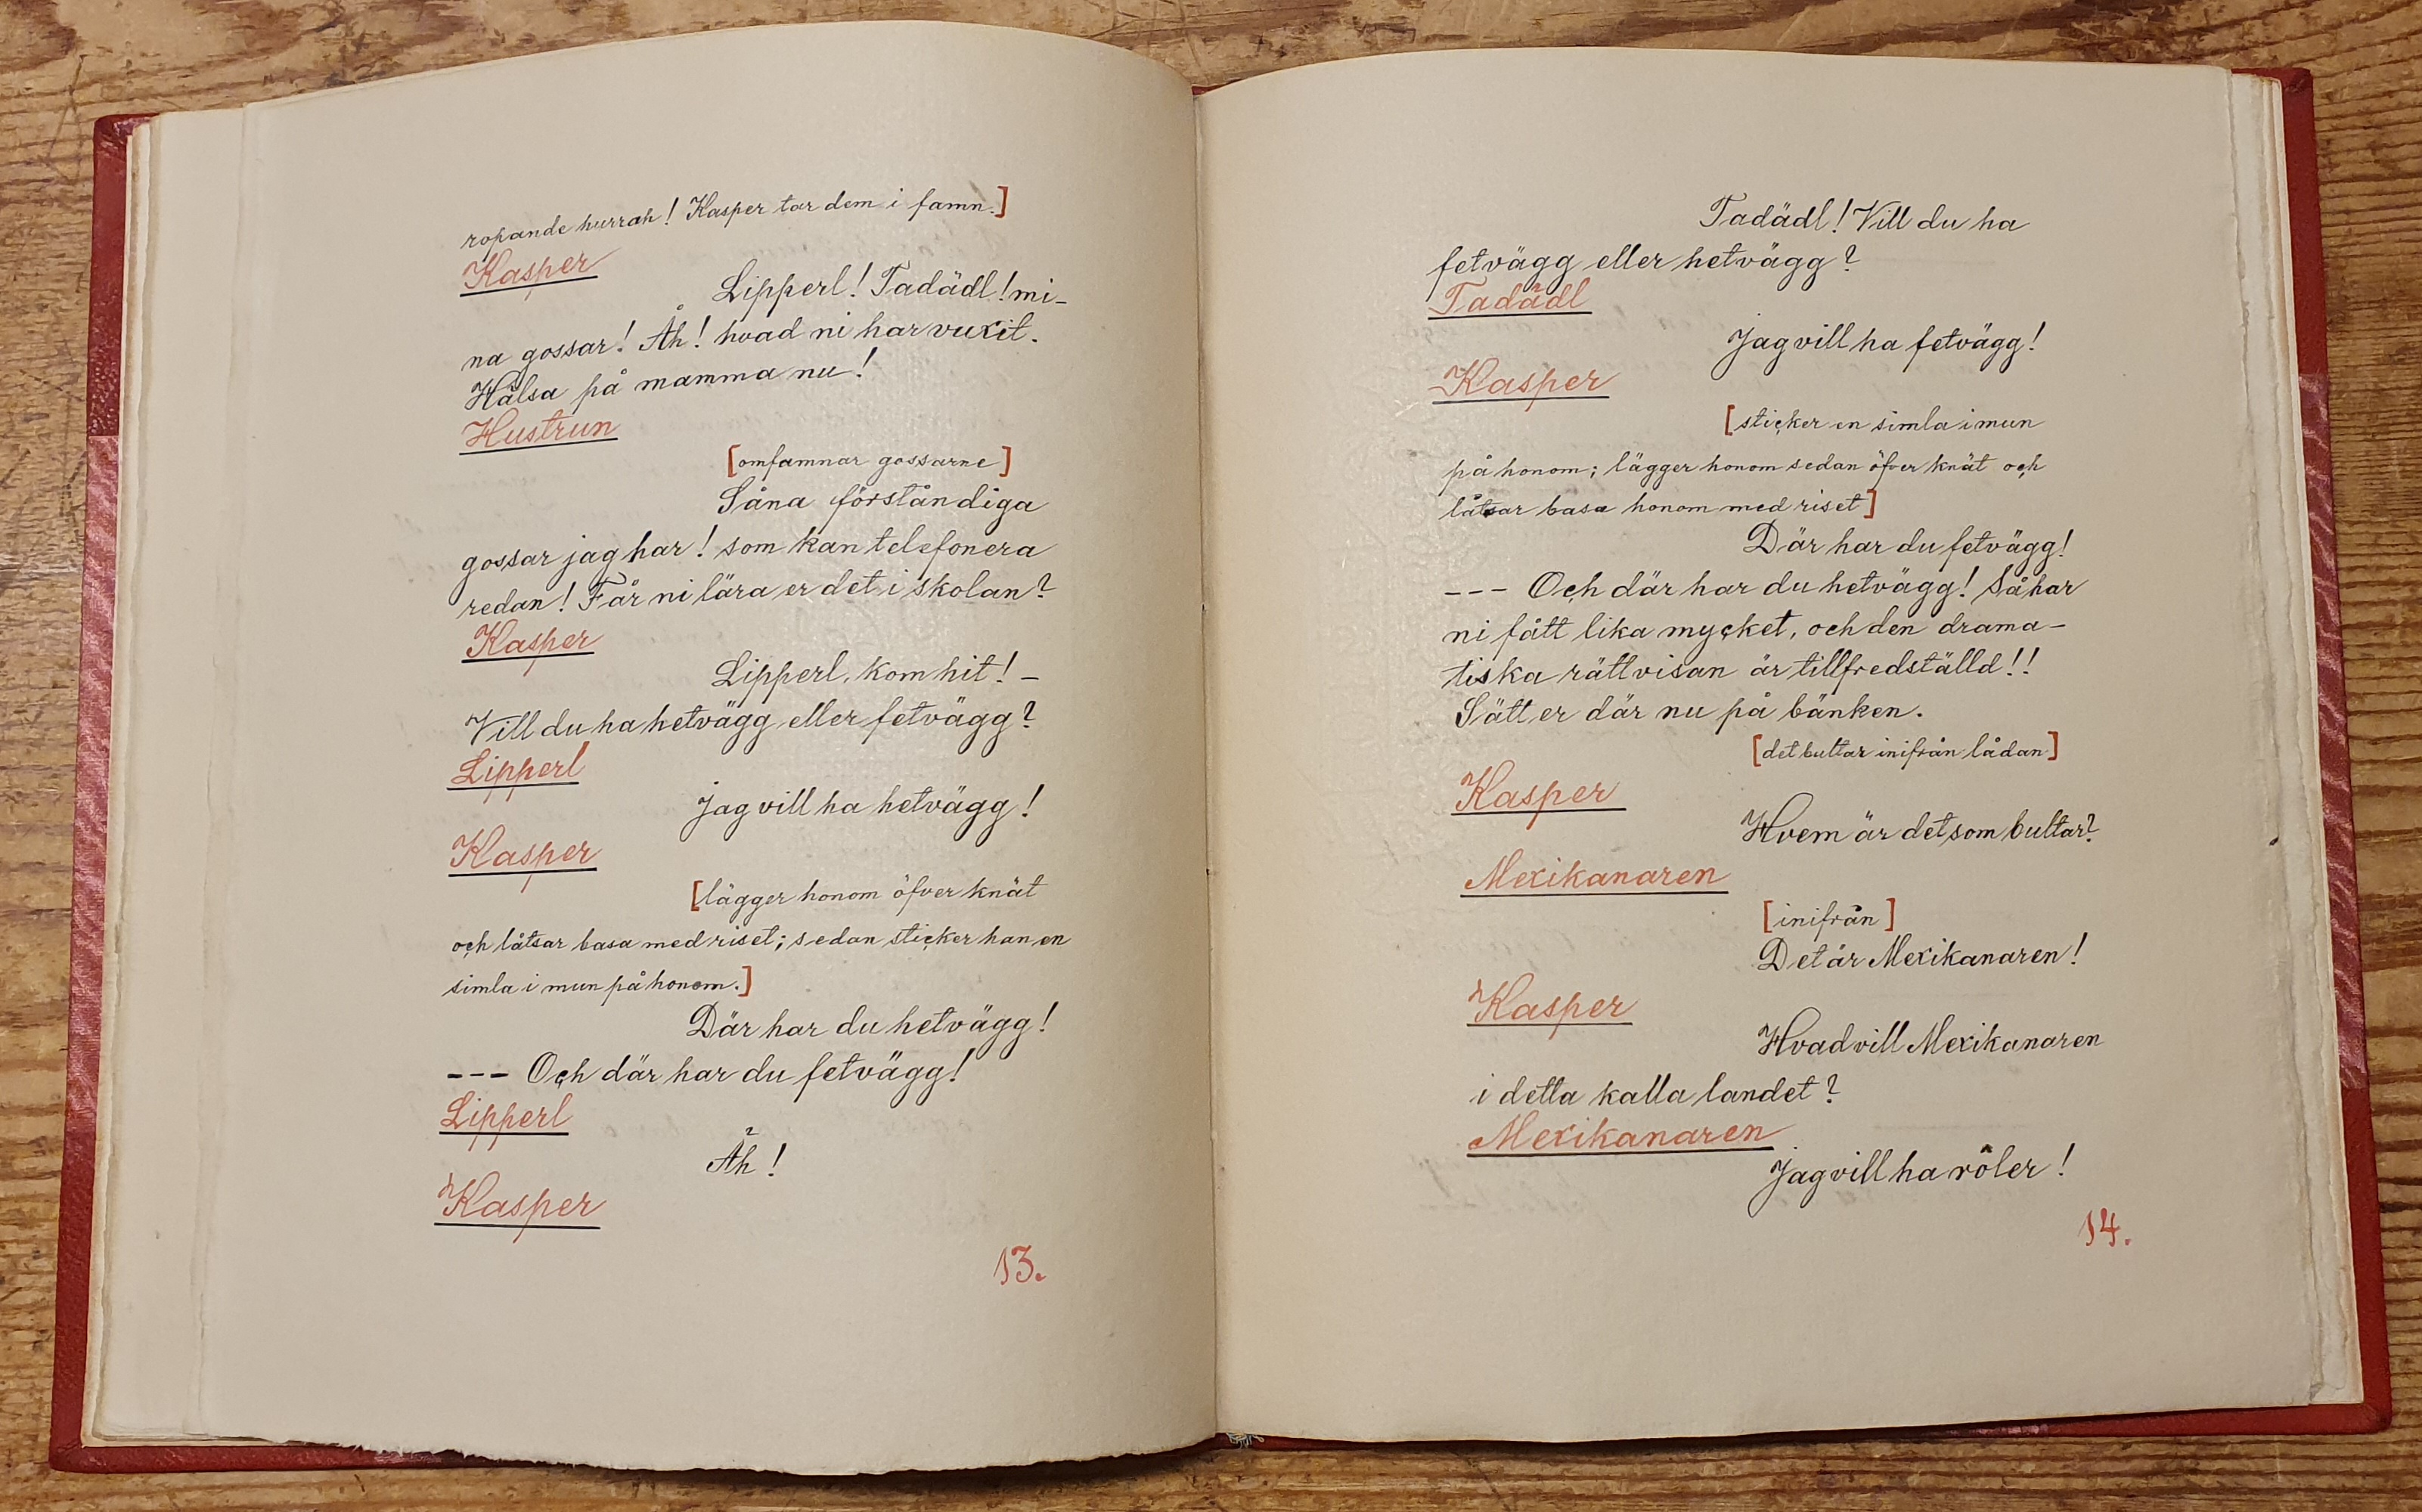 ropande hurrah! Kasper tar dem i famn.]
Kasper
Lipperl! Tadädl! mi-
na gossar! Åh! hvad ni har vuxit.
Hälsa på mamma nu!
Hustrun
[omfamnar gossarne]
Såna förståndiga
gossar jag har! som kan telefonera
redan! Får ni lära er det i skolan?
Kasper
Lipperl, kom hit! –
Vill du ha hetvägg eller fetvägg?
Lipperl
Jag vill ha hetvägg!
Kasper
[lägger honom öfver knät
och låtsar basa med riset; sedan sticker han en
simla i mun på honom.]
Där har du hetvägg!
--- Och där har du fetvägg!
Lipperl
Åh!
Kasper
13.
Tadädl! Vill du ha
fetvägg eller hetvägg?
Tadädl
Jag vill ha fetvägg!
Kasper
[sticker en simla i mun
på honom; lägger honom sedan öfver knät och
låtsar basa honom med riset]
Där har du fetvägg!
--- Och där har du hetvägg! Så har
ni fått lika mycket, och den drama-
tiska rättvisan är tillfredställd!!
Sätt er där nu på bänken.
[det bultar inifrån lådan]
Kasper
Hvem är det som bultar?
Mexikanaren
[inifrån]
Det är Mexikanaren!
Kasper
Hvad vill Mexikanaren
i detta kalla landet?
Mexikanaren
Jag vill ha rôler!
14.